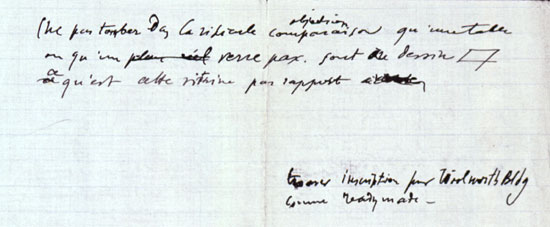 (Ne pas tomber Ds la ridicule objection
comparaison qu'une table
ou qu'un verre par. sont de dessin
qu'est cette vitrine par rapport
trouver inscription pour Woolworth Bldg
comme readymade –